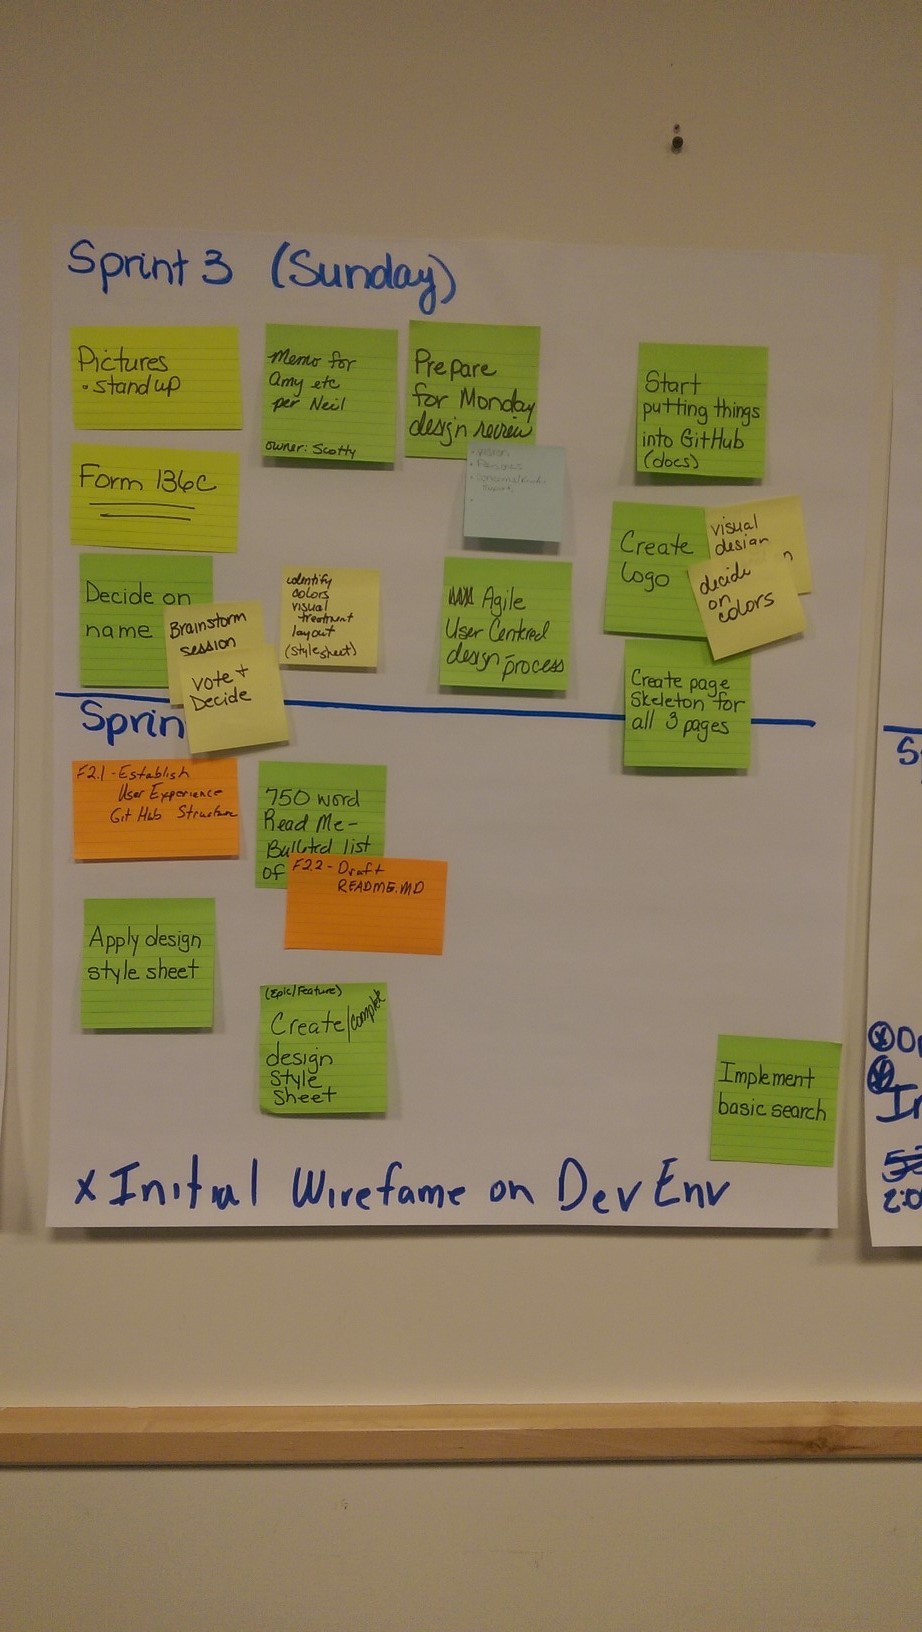 Sprint 3 (Sunday)
Pictures
• stand up
Memo for
Amy etc
per Neil
owner: Scotty
Prepare
for Monday
design review
• Personas
Start
putting things
into GitHub
(docs)
Form 136c
Create
logo
visual
design
decide
on
colors
Decide on
name
Brainstorm
session
vote +
Decide
identify
colors
visual
treatment
layout
(stylesheet)
Agile
User Centred
design process
Create page
Skeleton for
all 3 pages
Sprin
F2.1 - Establish
User Experience
Git Hub Structure
750 word
Read Me -
Bulleted list
of
F2.2 - Draft
README.MD
Apply design
style sheet
(Epic/Feature)
Create/complete
design
style
sheet
Implement
basic search
x Initial Wirefame on Dev Env